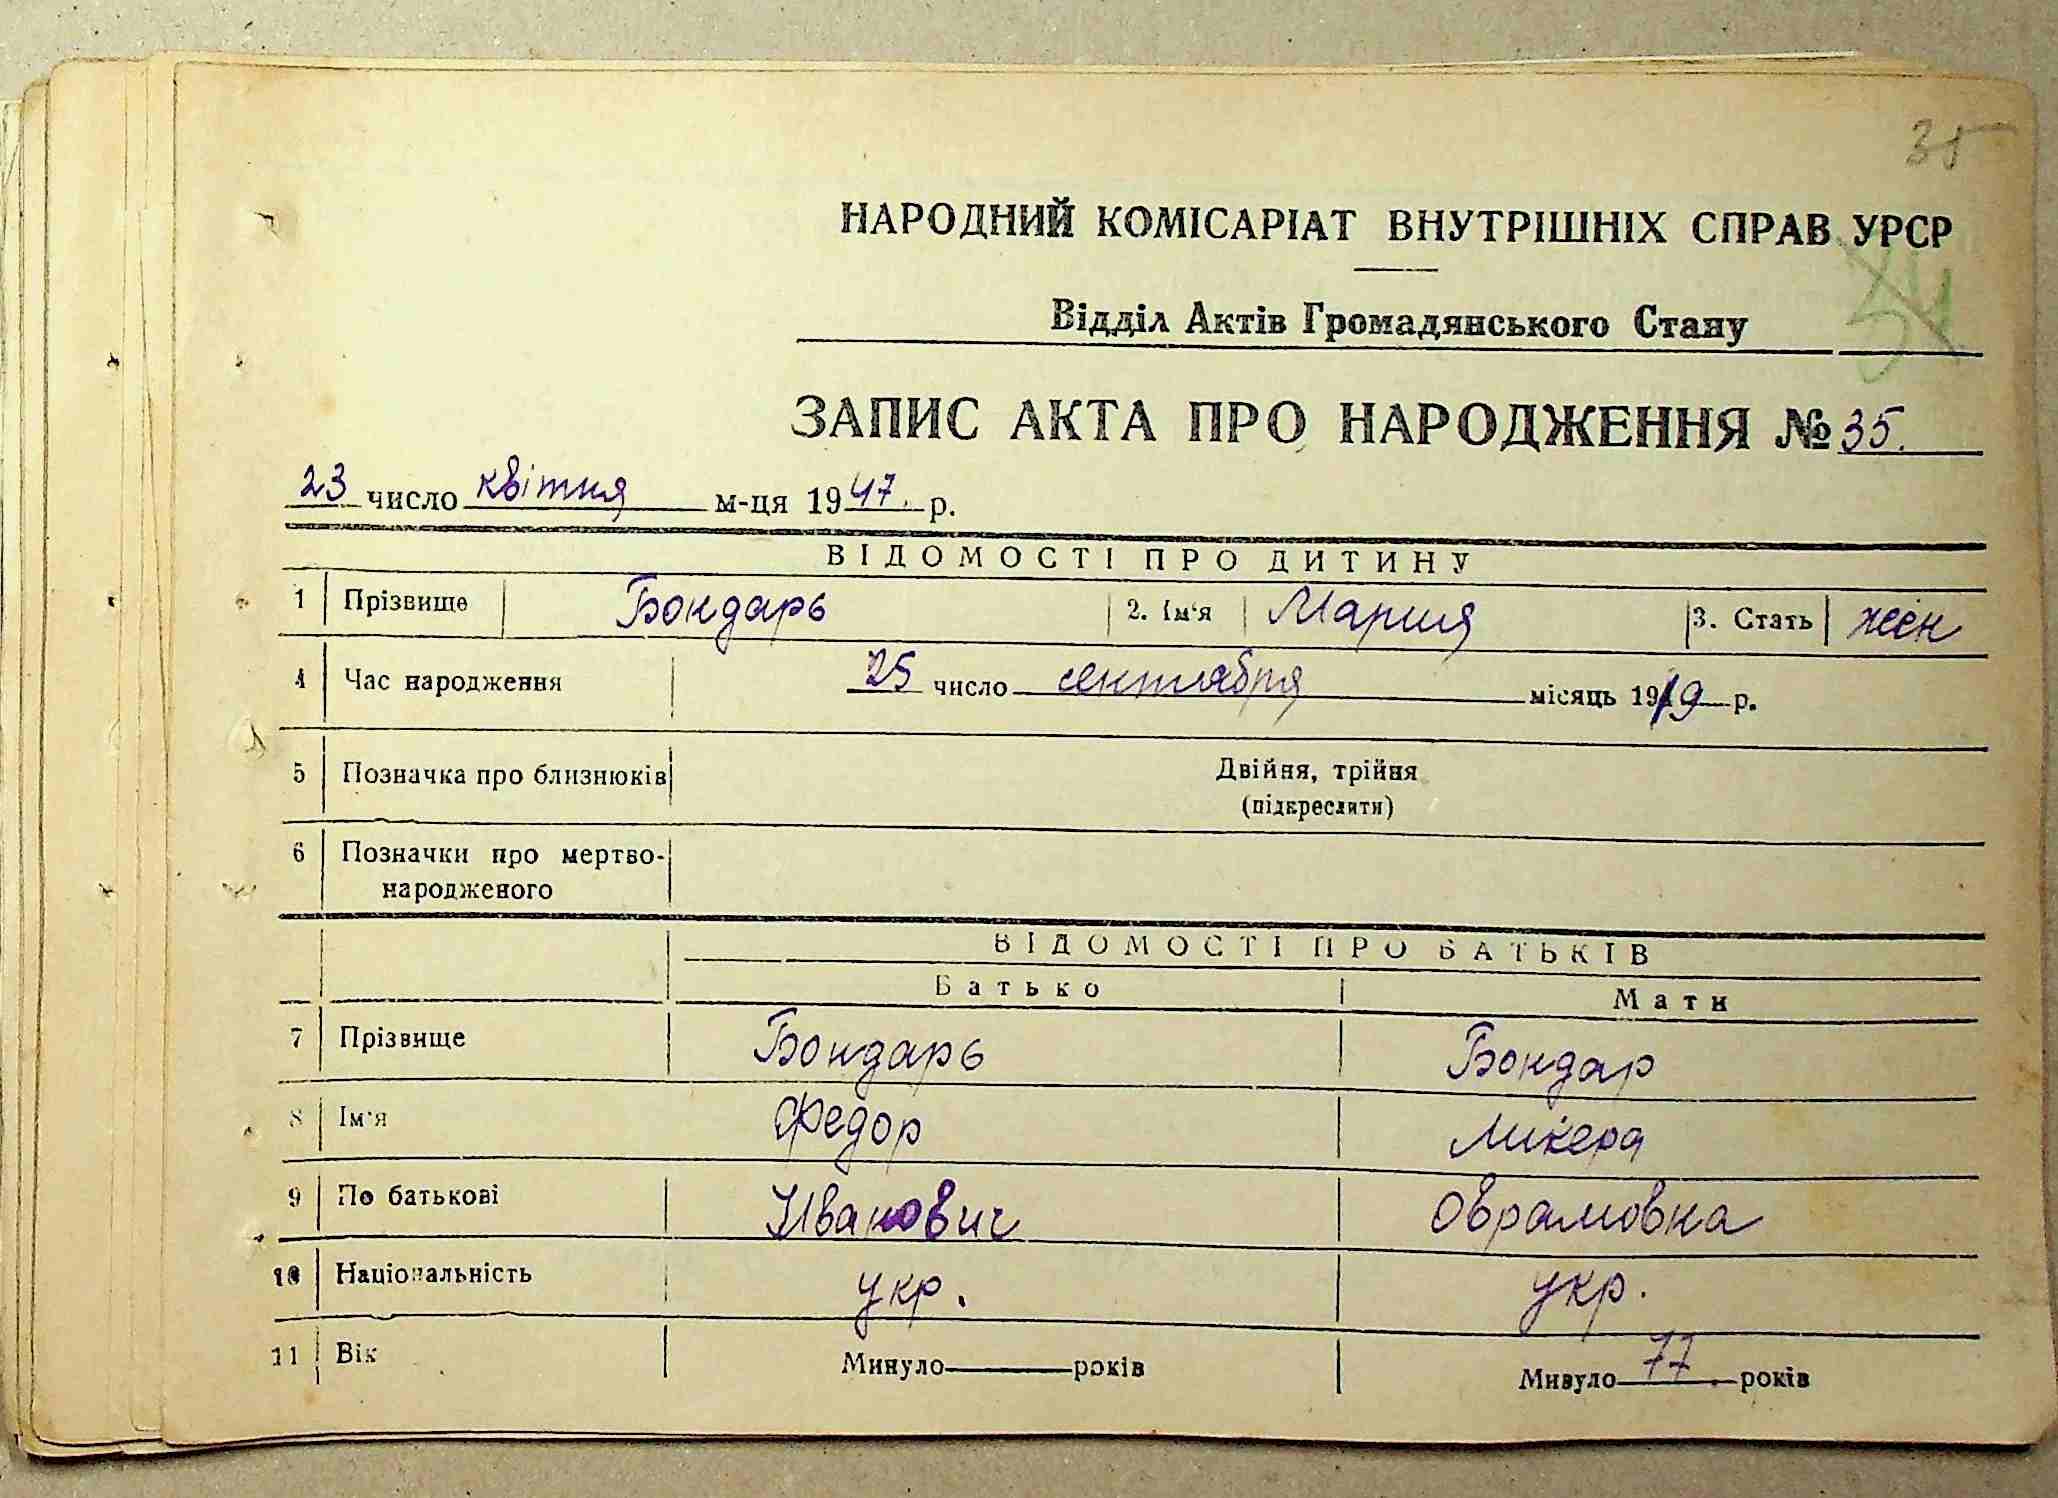 35
НАРОДНИЙ КОМІСАРІАТ ВНУТРІШНІХ СПРАВ УРСР
34
Відділ Актів Громадянського Стану
ЗАПИС АКТА ПРО НАРОДЖЕННЯ № 35.
23 число квітня м-ця 1947. р.
ВІДОМОСТІ ПРО ДИТИНУ
1 Прізвище Бондарь 2. Ім'я Мария 3. Стать жен
4 Час народження 25 число сентября місяць 1919 р.
5 Позначка про близнюків Двійня, трійня
(підкреслити)
6 Позначки про мертво-
народженого
ВІДОМОСТІ ПРО БАТЬКІВ
Батько Мати
7 Прізвище Бондарь Бондар
8 Ім'я Федор Ликера
9 По батькові Иванович Оврамовна
10 Національність укр. укр.
11 Вік Минуло років Минуло 77. років